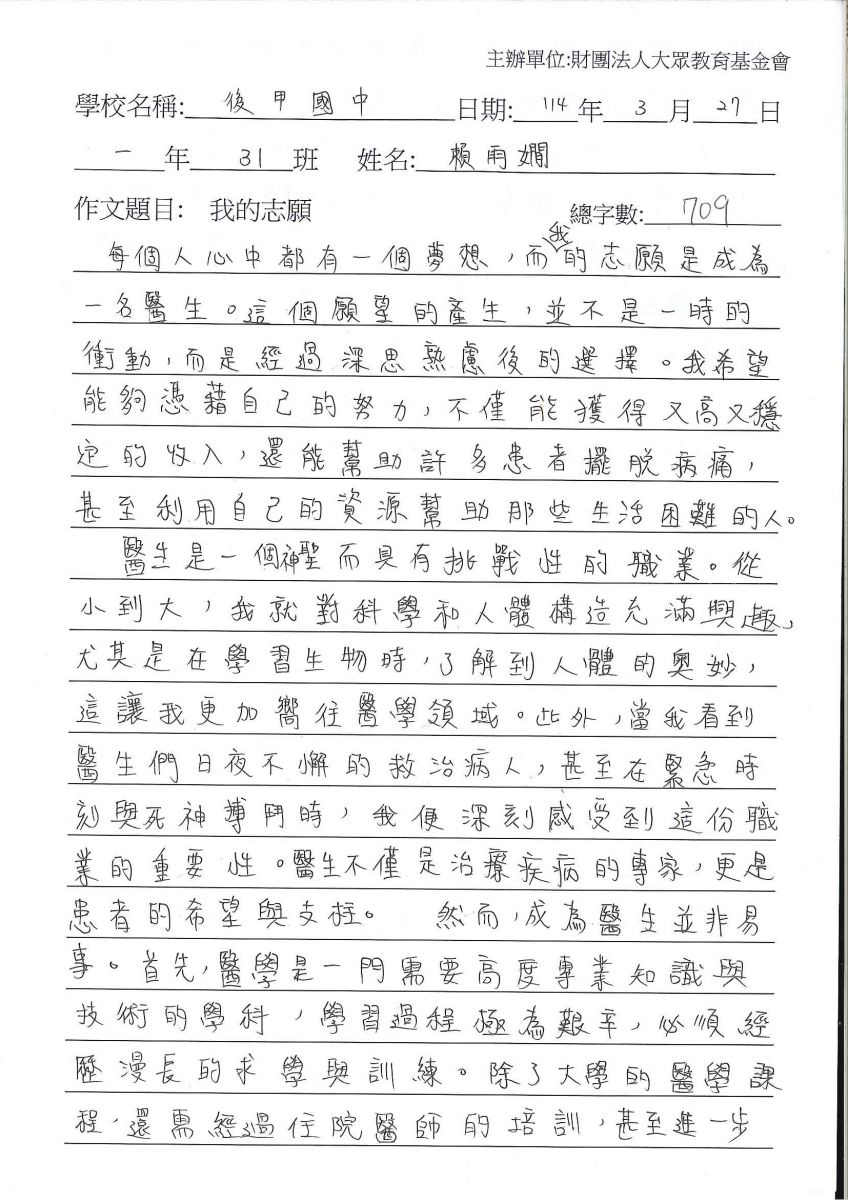 主辦單位:財團法人大眾教育基金會
學校名稱: 後甲國中 日期: 114 年 3 月 27 日
一 年 31 班 姓名: 賴雨嫺
作文題目: 我的志願 總字數: 709
每個人心中都有一個夢想，而我的志願是成為
一名醫生。這個願望的產生，並不是一時的
衝動，而是經過深思熟慮後的選擇。我希望
能夠憑藉自己的努力，不僅能獲得又高又穩
定的收入，還能幫助許多患者擺脫病痛，
甚至利用自己的資源幫助那些生活困難的人。
醫生是一個神聖而具有挑戰性的職業。從
小到大，我就對科學和人體構造充滿興趣，
尤其是在學習生物時，了解到人體的奧妙，
這讓我更加嚮往醫學領域。此外，當我看到
醫生們日夜不懈的救治病人，甚至在緊急時
刻與死神搏鬥時，我便深刻感受到這份職
業的重要性。醫生不僅是治療疾病的專家，更是
患者的希望與支柱。 然而，成為醫生並非易
事。首先，醫學是一門需要高度專業知識與
技術的學科，學習過程極為艱辛，必須經
歷漫長的求學與訓練。除了大學的醫學課
程，還需經過住院醫師的培訓，甚至進一步